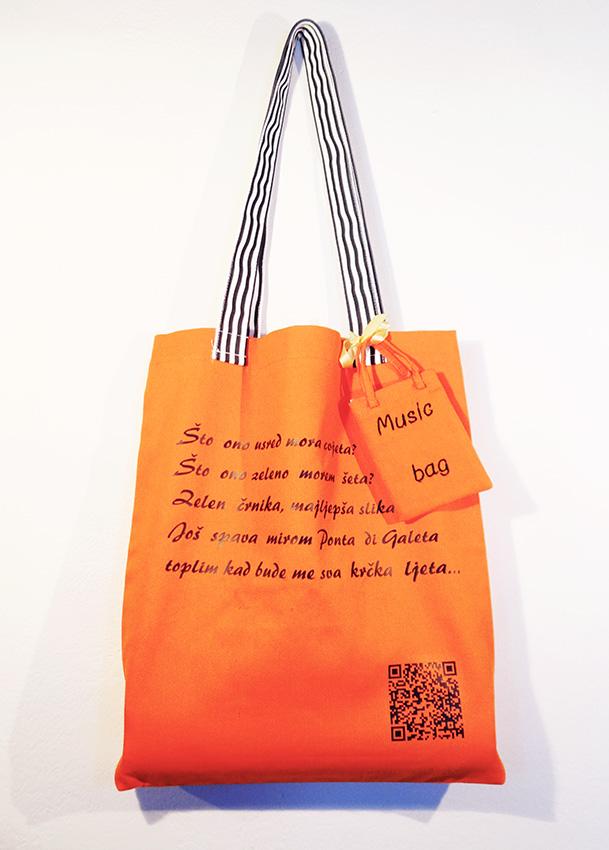 Što ono usred mora cvjeta?
Što ono zeleno morem šeta?
Zelen črnika, najljepša slika
Još spava mirom Ponta di Galeta
toplim kad bude me sva krčka ljeta...
Music
bag